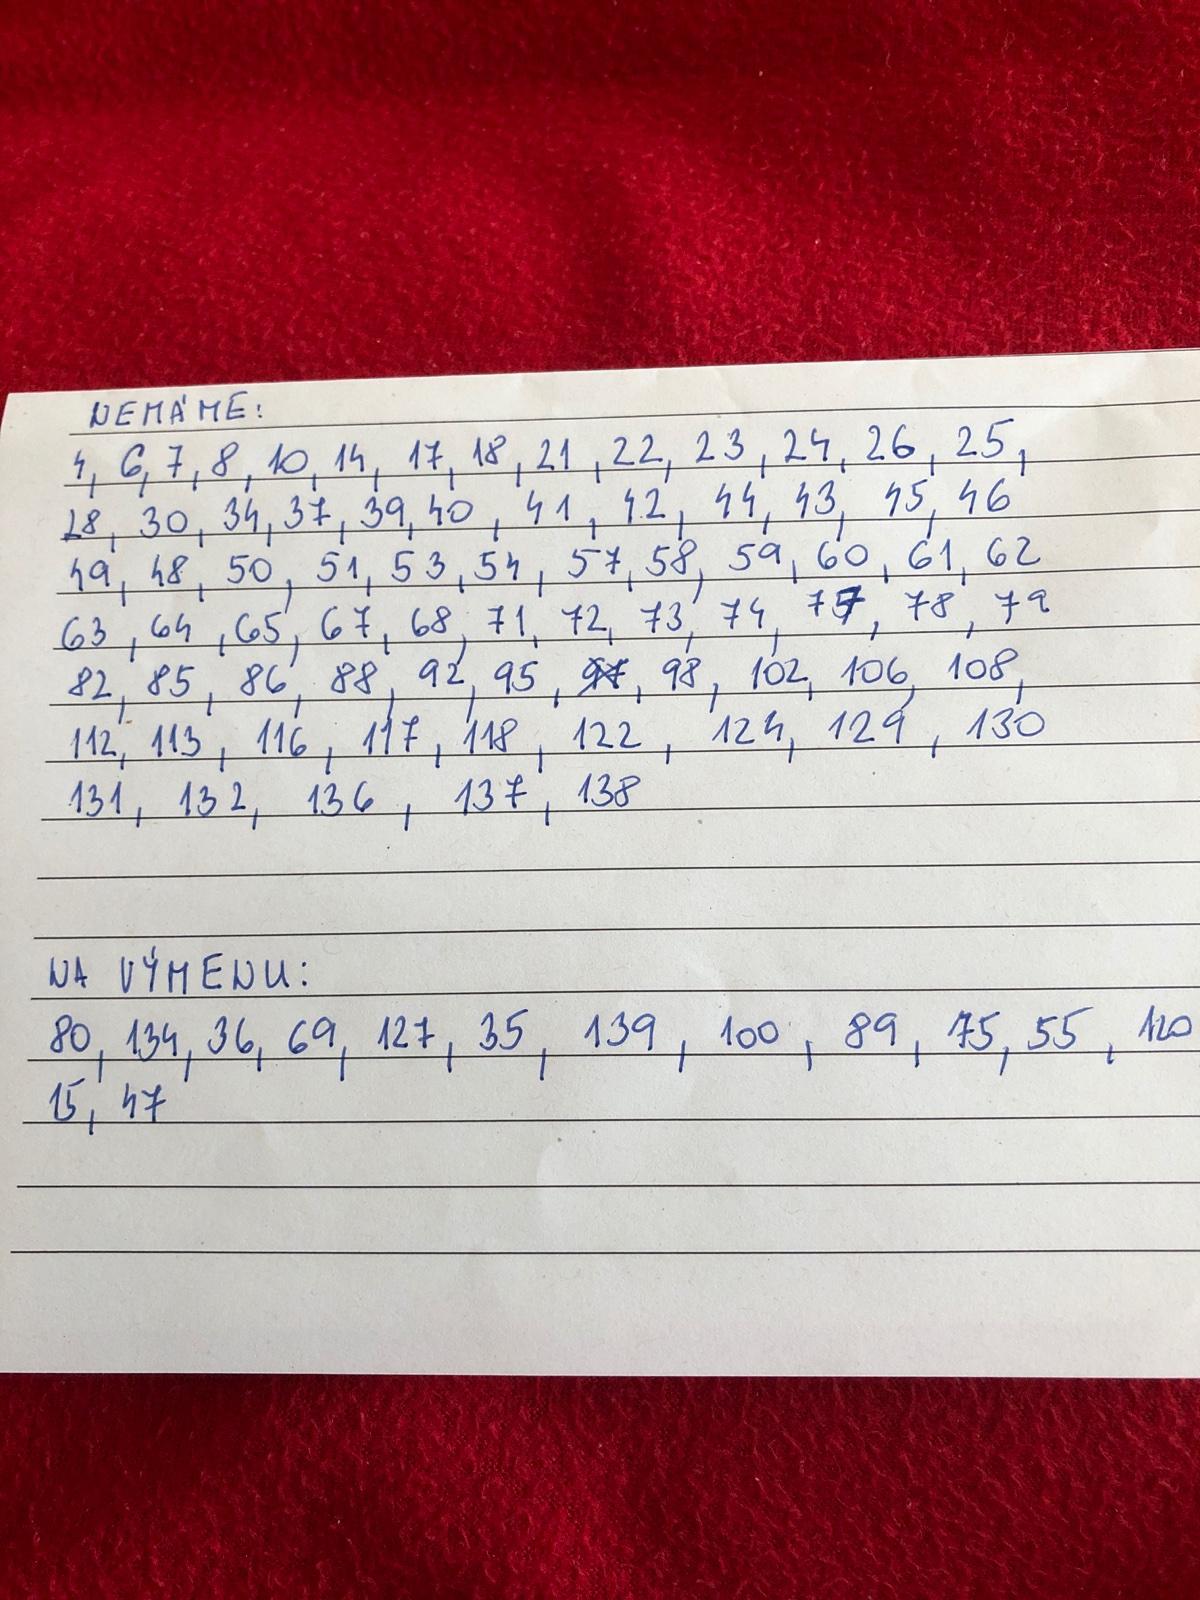 NEMÁME:
4, 6, 7, 8, 10, 14, 17, 18, 21, 22, 23, 24, 26, 25,
28, 30, 34, 37, 39, 40, 41, 42, 44, 43, 45, 46
49, 48, 50, 51, 53, 54, 57, 58, 59, 60, 61, 62
63, 64, 65, 67, 68, 71, 72, 73, 74, 77, 78, 79
82, 85, 86, 88, 92, 95, 98, 102, 106, 108,
112, 113, 116, 117, 118, 122, 124, 129, 130
131, 132, 136, 137, 138
NA VÝMENU:
80, 134, 36, 69, 127, 35, 139, 100, 89, 75, 55, 120
15, 47